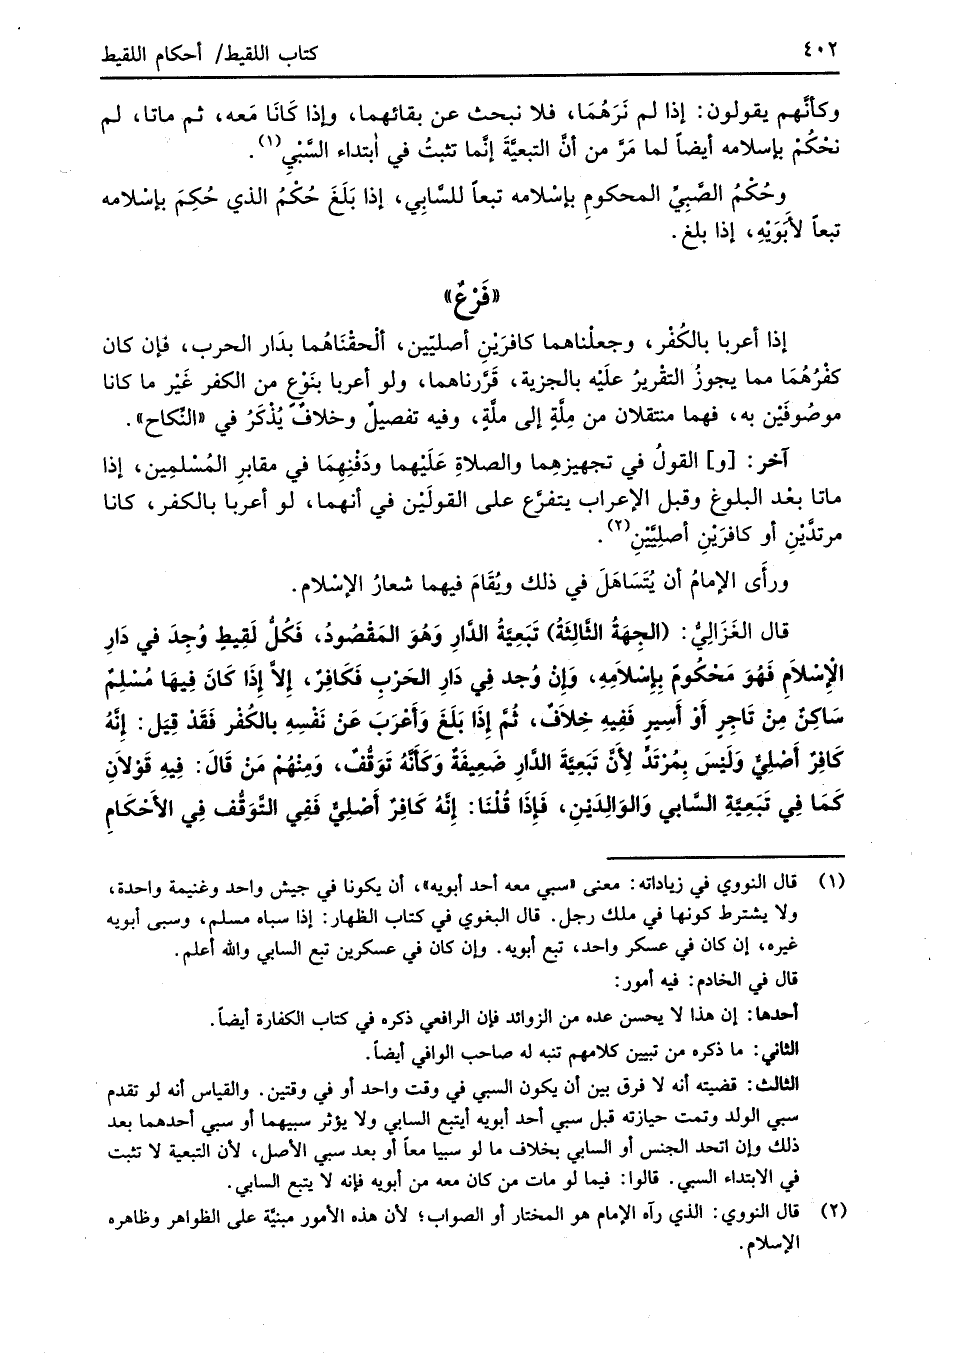 ٤٠٢
كتاب اللقيط/ أحكام اللقيط
وكأنَّهم يقولون: إذا لم نَرَهُمَا، فلا نبحث عن بقائهما، وإذا كَانَا مَعه، ثم ماتا، لم
نحْكُمْ بإسلامه أيضاً لما مَرَّ من أنَّ التبعيَّةَ إنَّما تثبتُ في ابتداء السَّبْيِ(١).
وحُكْمُ الصَّبِيِّ المحكومِ بإسلامه تبعاً للسَّابِي، إذا بَلَغَ حُكْمُ الذي حُكِمَ بإسْلامه
تبعاً لأَبَوَيْهِ، إذا بلغ.
«فَرْعٌ»
إذا أعربا بالكُفْر، وجعلْناهما كافرَيْنِ أصليّين، ألْحقْنَاهُما بدَار الحرب، فإن كان
كفْرُهُمَا مما يجوزُ التقْريرُ علَيْه بالجزية، قَرَّرناهما، ولو أعربا بنَوْعٍ من الكفر غَيْر ما كانا
موصُوفَيْن به، فهما منتقلان من مِلَّةٍ إلى ملَّة، وفيه تفصيلٌ وخلافٌ يُذْكَرُ في «النِّكاح».
آخر: [و] القولُ في تجهيزهما والصلاةِ عَلَيْهما ودَفْنِهِمَا في مقابرِ المُسْلمين، إذا
ماتا بعْد البلوغ وقبل الإعراب يتفرَّع على القولَيْن في أنهما، لو أعربا بالكفر، كانا
مرتدَّيْنِ أو كافرَيْنِ أصلِيَّيْنِ(٢).
ورأَى الإمامُ أن يُتَسَاهَلَ في ذلك ويُقَامَ فيهما شعارُ الإسْلام.
قال الغَزَالِيُّ: (الجِهَةُ الثَّالِثَةُ) تَبَعِيَّةُ الدَّارِ وَهُوَ المَقْصُودُ، فَكُلُّ لَقِيطٍ وُجِدَ في دَارِ
الْإِسْلَامِ فَهُوَ مَحْكُومٌ بِإِسْلَامِهِ، وَإِنْ وُجد فِي دَارِ الحَرْبِ فَكَافِرٌ، إِلاَّ إِذَا كَانَ فِيهَا مُسْلِمٌ
سَاكِنٌ مِنْ تَاجِرٍ أَوْ أَسِيرٍ فَفِيهِ خِلَافٌ، ثُمَّ إِذَا بَلَغَ وَأَعْرَبَ عَنْ نَفْسِهِ بِالكُفْر فَقَدْ قِيَل: إِنَّهُ
كَافِرٌ أَصْلِيٌّ وَلَيْسَ بِمُرْتَدٍّ لِأَنَّ تَبَعِيَةَ الدَّارِ ضَعِيفَةٌ وَكَأَنَّهُ تَوَقُّفٌ، وَمِنْهُمْ مَنْ قَالَ: فِيهِ قَوْلَانِ
كَمَا فِي تَبَعِيَّةِ السَّابِي وَالوَالِدَيْنِ، فَإِذَا قُلْنَا: إِنَّهُ كَافِرٌ أَصْلِيٌّ فَفِي التَّوَقُّف فِي الأَحْكَامِ
(١) قال النووي في زياداته: معنى «سبي معه أحد أبويه»، أن يكونا في جيش واحد وغنيمة واحدة،
ولا يشترط كونها في ملك رجل. قال البغوي في كتاب الظهار: إذا سباه مسلم، وسبى أبويه
غيره، إن كان في عسكر واحد، تبع أبويه. وإن كان في عسكرين تبع السابي والله أعلم.
قال في الخادم: فيه أمور:
أحدها: إن هذا لا يحسن عده من الزوائد فإن الرافعي ذكره في كتاب الكفارة أيضاً.
الثاني: ما ذكره من تبيين كلامهم تنبه له صاحب الوافي أيضاً.
الثالث: قضيته أنه لا فرق بين أن يكون السبي في وقت واحد أو في وقتين. والقياس أنه لو تقدم
سبي الولد وتمت حيازته قبل سبي أحد أبويه أيتبع السابي ولا يؤثر سبيهما أو سبي أحدهما بعد
ذلك وإن اتحد الجنس أو السابي بخلاف ما لو سبيا معاً أو بعد سبي الأصل، لأن التبعية لا تثبت
في الابتداء السبي. قالوا: فيما لو مات من كان معه من أبويه فإنه لا يتبع السابي.
(٢) قال النووي: الذي رآه الإمام هو المختار أو الصواب؛ لأن هذه الأمور مبنيَّة على الظواهر وظاهره
الإسلام.